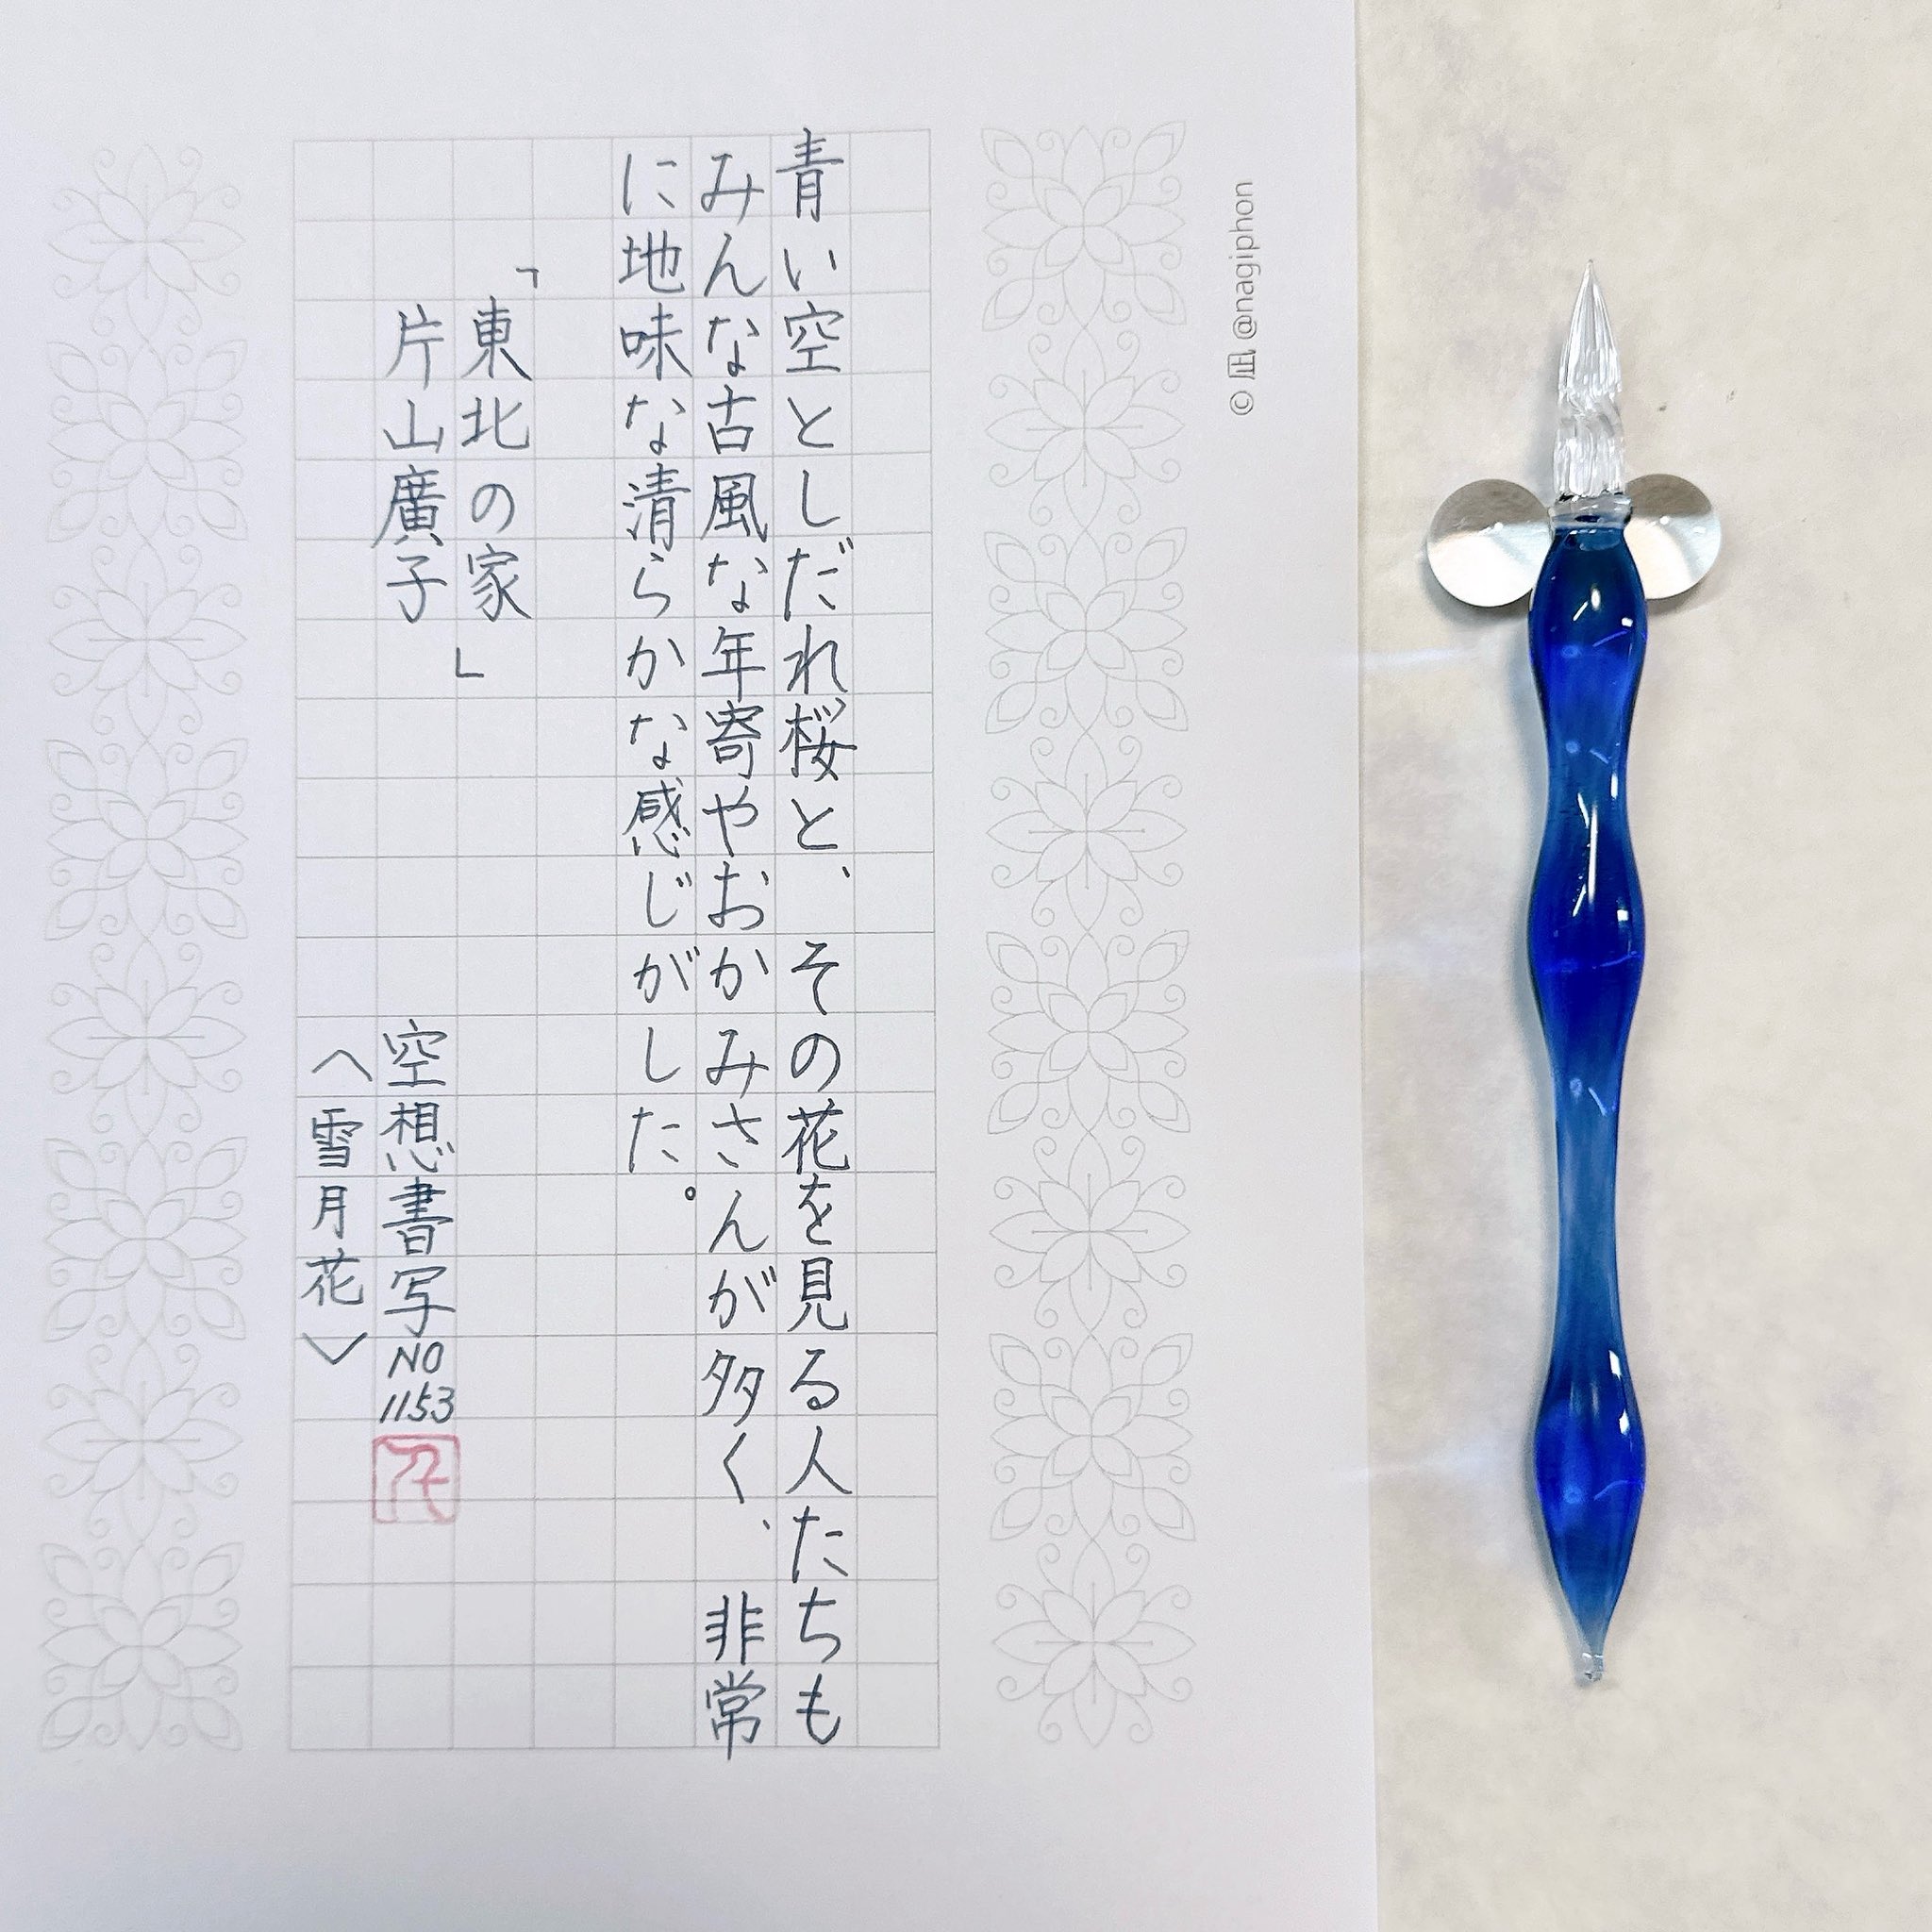 青い空としだれ桜と、その花を見る人たちも
みんな古風な年寄やおかみさんが多く、非常
に地味な清らかな感じがした。
「東北の家」
片山廣子
空想書写NO1153
〈雪月花〉
© 凪 @nagiphon